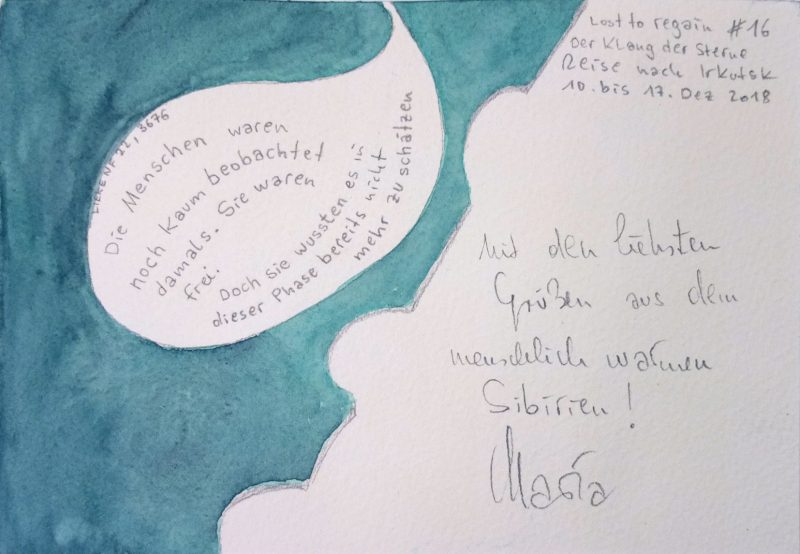 Lost to regain #16
Der Klang der Sterne
Reise nach Irkutsk
10. bis 17. Dez 2018
22, 3676
Die Menschen waren
noch kaum beobachtet
damals. Sie waren
frei.
Doch sie wussten es in
dieser Phase bereits nicht
mehr zu schätzen
Mit den liebsten
Grüßen aus dem
menschlich warmen
Sibirien!
Maria